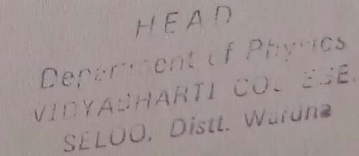 HEAD
Department of Physics
VIDYABHARTI COLLEGE.
SELOO, Distt. Wardha